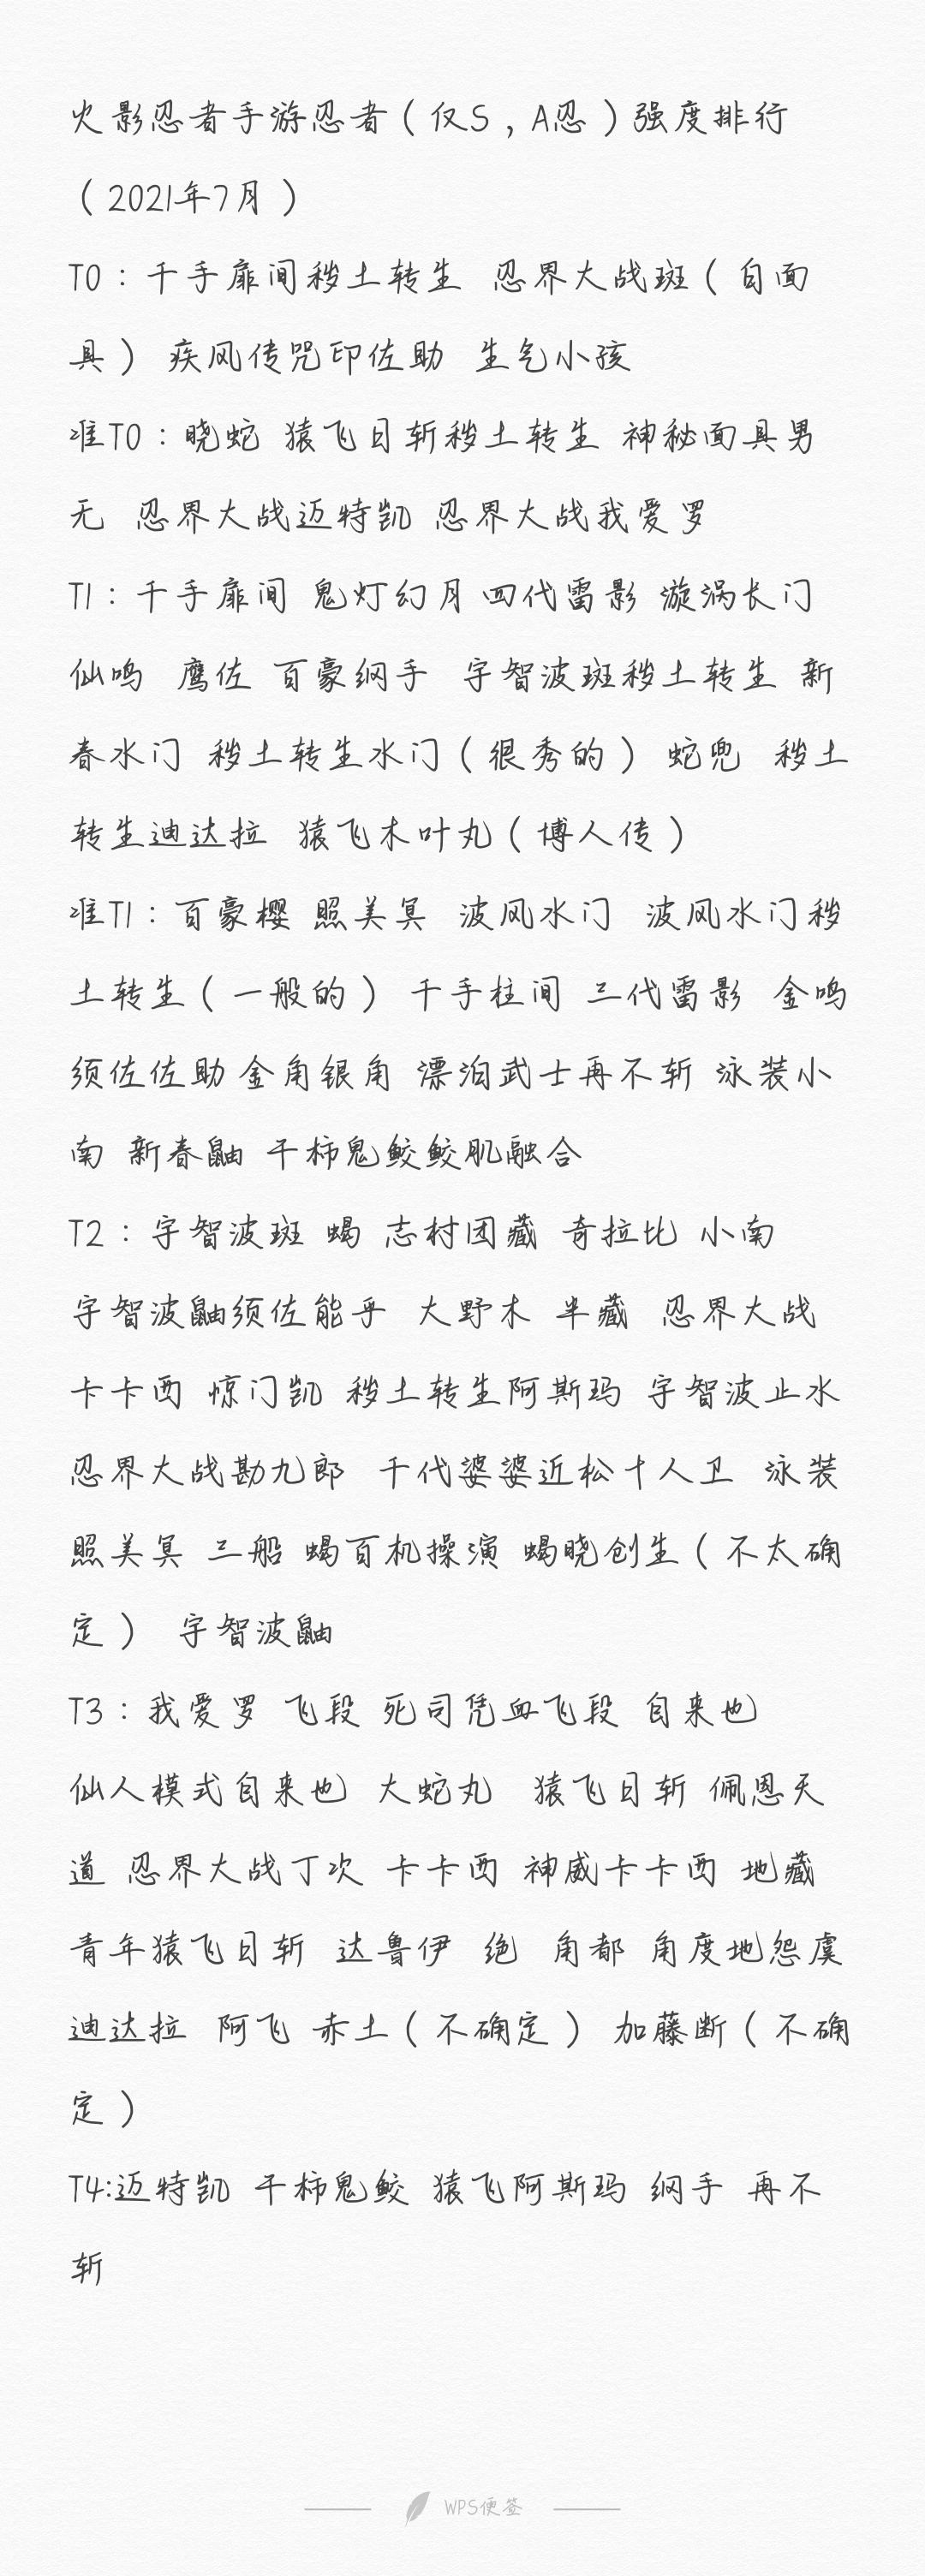 火影忍者手游忍者（仅S，A忍）强度排行
（2021年7月）
T0：千手扉间秽土转生 忍界大战斑（白面
具） 疾风传咒印佐助 生气小孩
准T0：晓蛇 猿飞日斩秽土转生 神秘面具男
无 忍界大战迈特凯 忍界大战我爱罗
T1：千手扉间 鬼灯幻月 四代雷影 漩涡长门
仙鸣 鹰佐 百豪纲手 宇智波斑秽土转生 新
春水门 秽土转生水门（很秀的） 蛇兜 秽土
转生迪达拉 猿飞木叶丸（博人传）
准T1：百豪樱 照美冥 波风水门 波风水门秽
土转生（一般的） 千手柱间 三代雷影 金鸣
须佐佐助 金角银角 漂泊武士再不斩 泳装小
南 新春鼬 干柿鬼鲛鲛肌融合
T2：宇智波斑 蝎 志村团藏 奇拉比 小南
宇智波鼬须佐能乎 大野木 半藏 忍界大战
卡卡西 惊门凯 秽土转生阿斯玛 宇智波止水
忍界大战勘九郎 千代婆婆近松十人卫 泳装
照美冥 三船 蝎百机操演 蝎晓创生（不太确
定） 宇智波鼬
T3：我爱罗 飞段 死司凭血飞段 自来也
仙人模式自来也 大蛇丸 猿飞日斩 佩恩天
道 忍界大战丁次 卡卡西 神威卡卡西 地藏
青年猿飞日斩 达鲁伊 绝 角都 角度地怨虞
迪达拉 阿飞 赤土（不确定） 加藤断（不确
定）
T4:迈特凯 干柿鬼鲛 猿飞阿斯玛 纲手 再不
斩
WPS便签